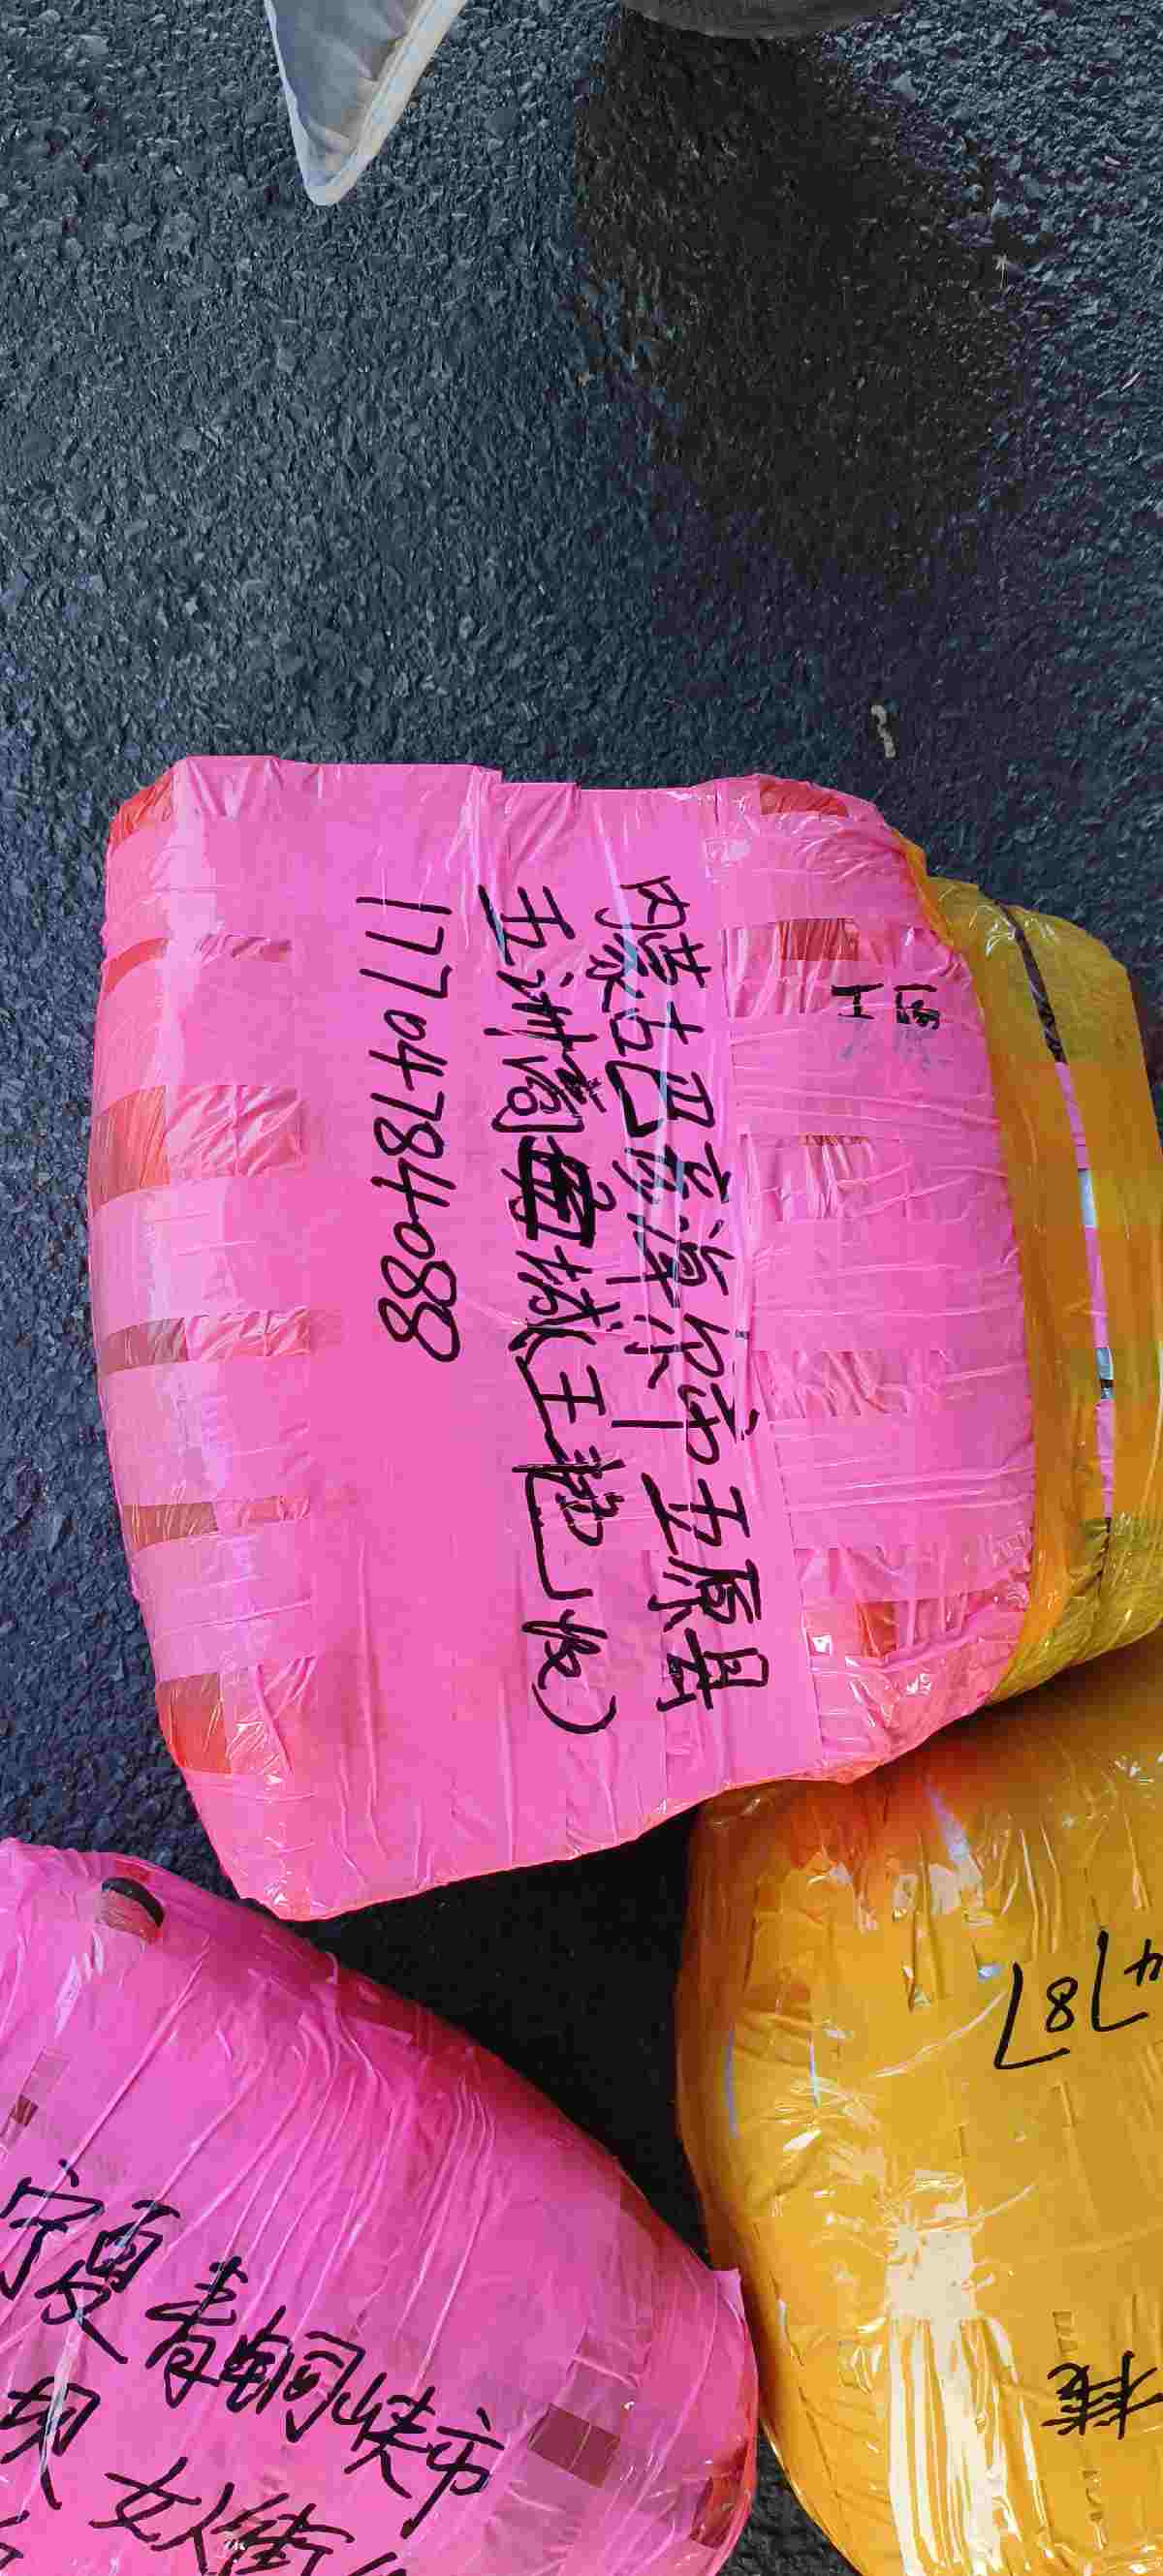 内蒙古巴彦淖尔市五原县
五洲商城(王艳收)
17704784088
宁夏青铜峡市
女人街
4787